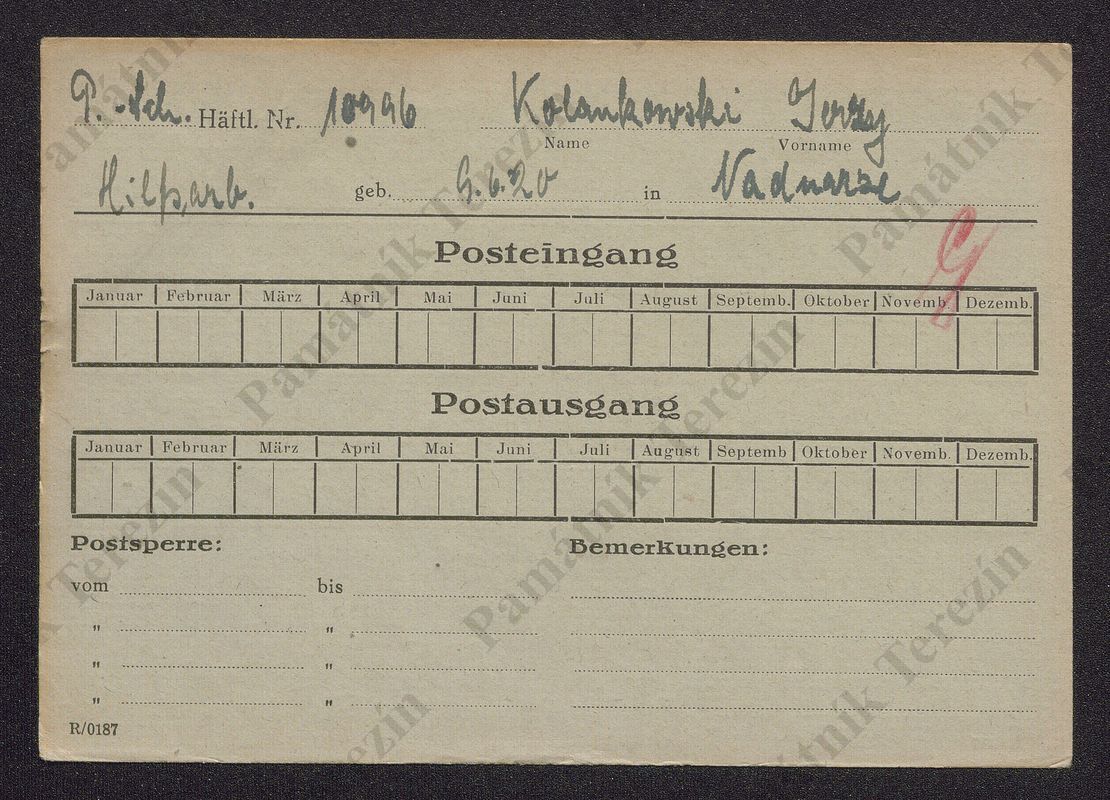 P. Sch. Häftl. Nr. 10996 Kolankowski Jerzy
Name Vorname
Hilfsarb. geb. 9.6.20 in Nadnarze
Posteingang
Januar Februar März April Mai Juni Juli August Septemb. Oktober Novemb. Dezemb.
Postausgang
Januar Februar März April Mai Juni Juli August Septemb Oktober Novemb. Dezemb.
Postsperre: Bemerkungen:
vom bis
" "
" "
" "
R/0187
Památník Terezín